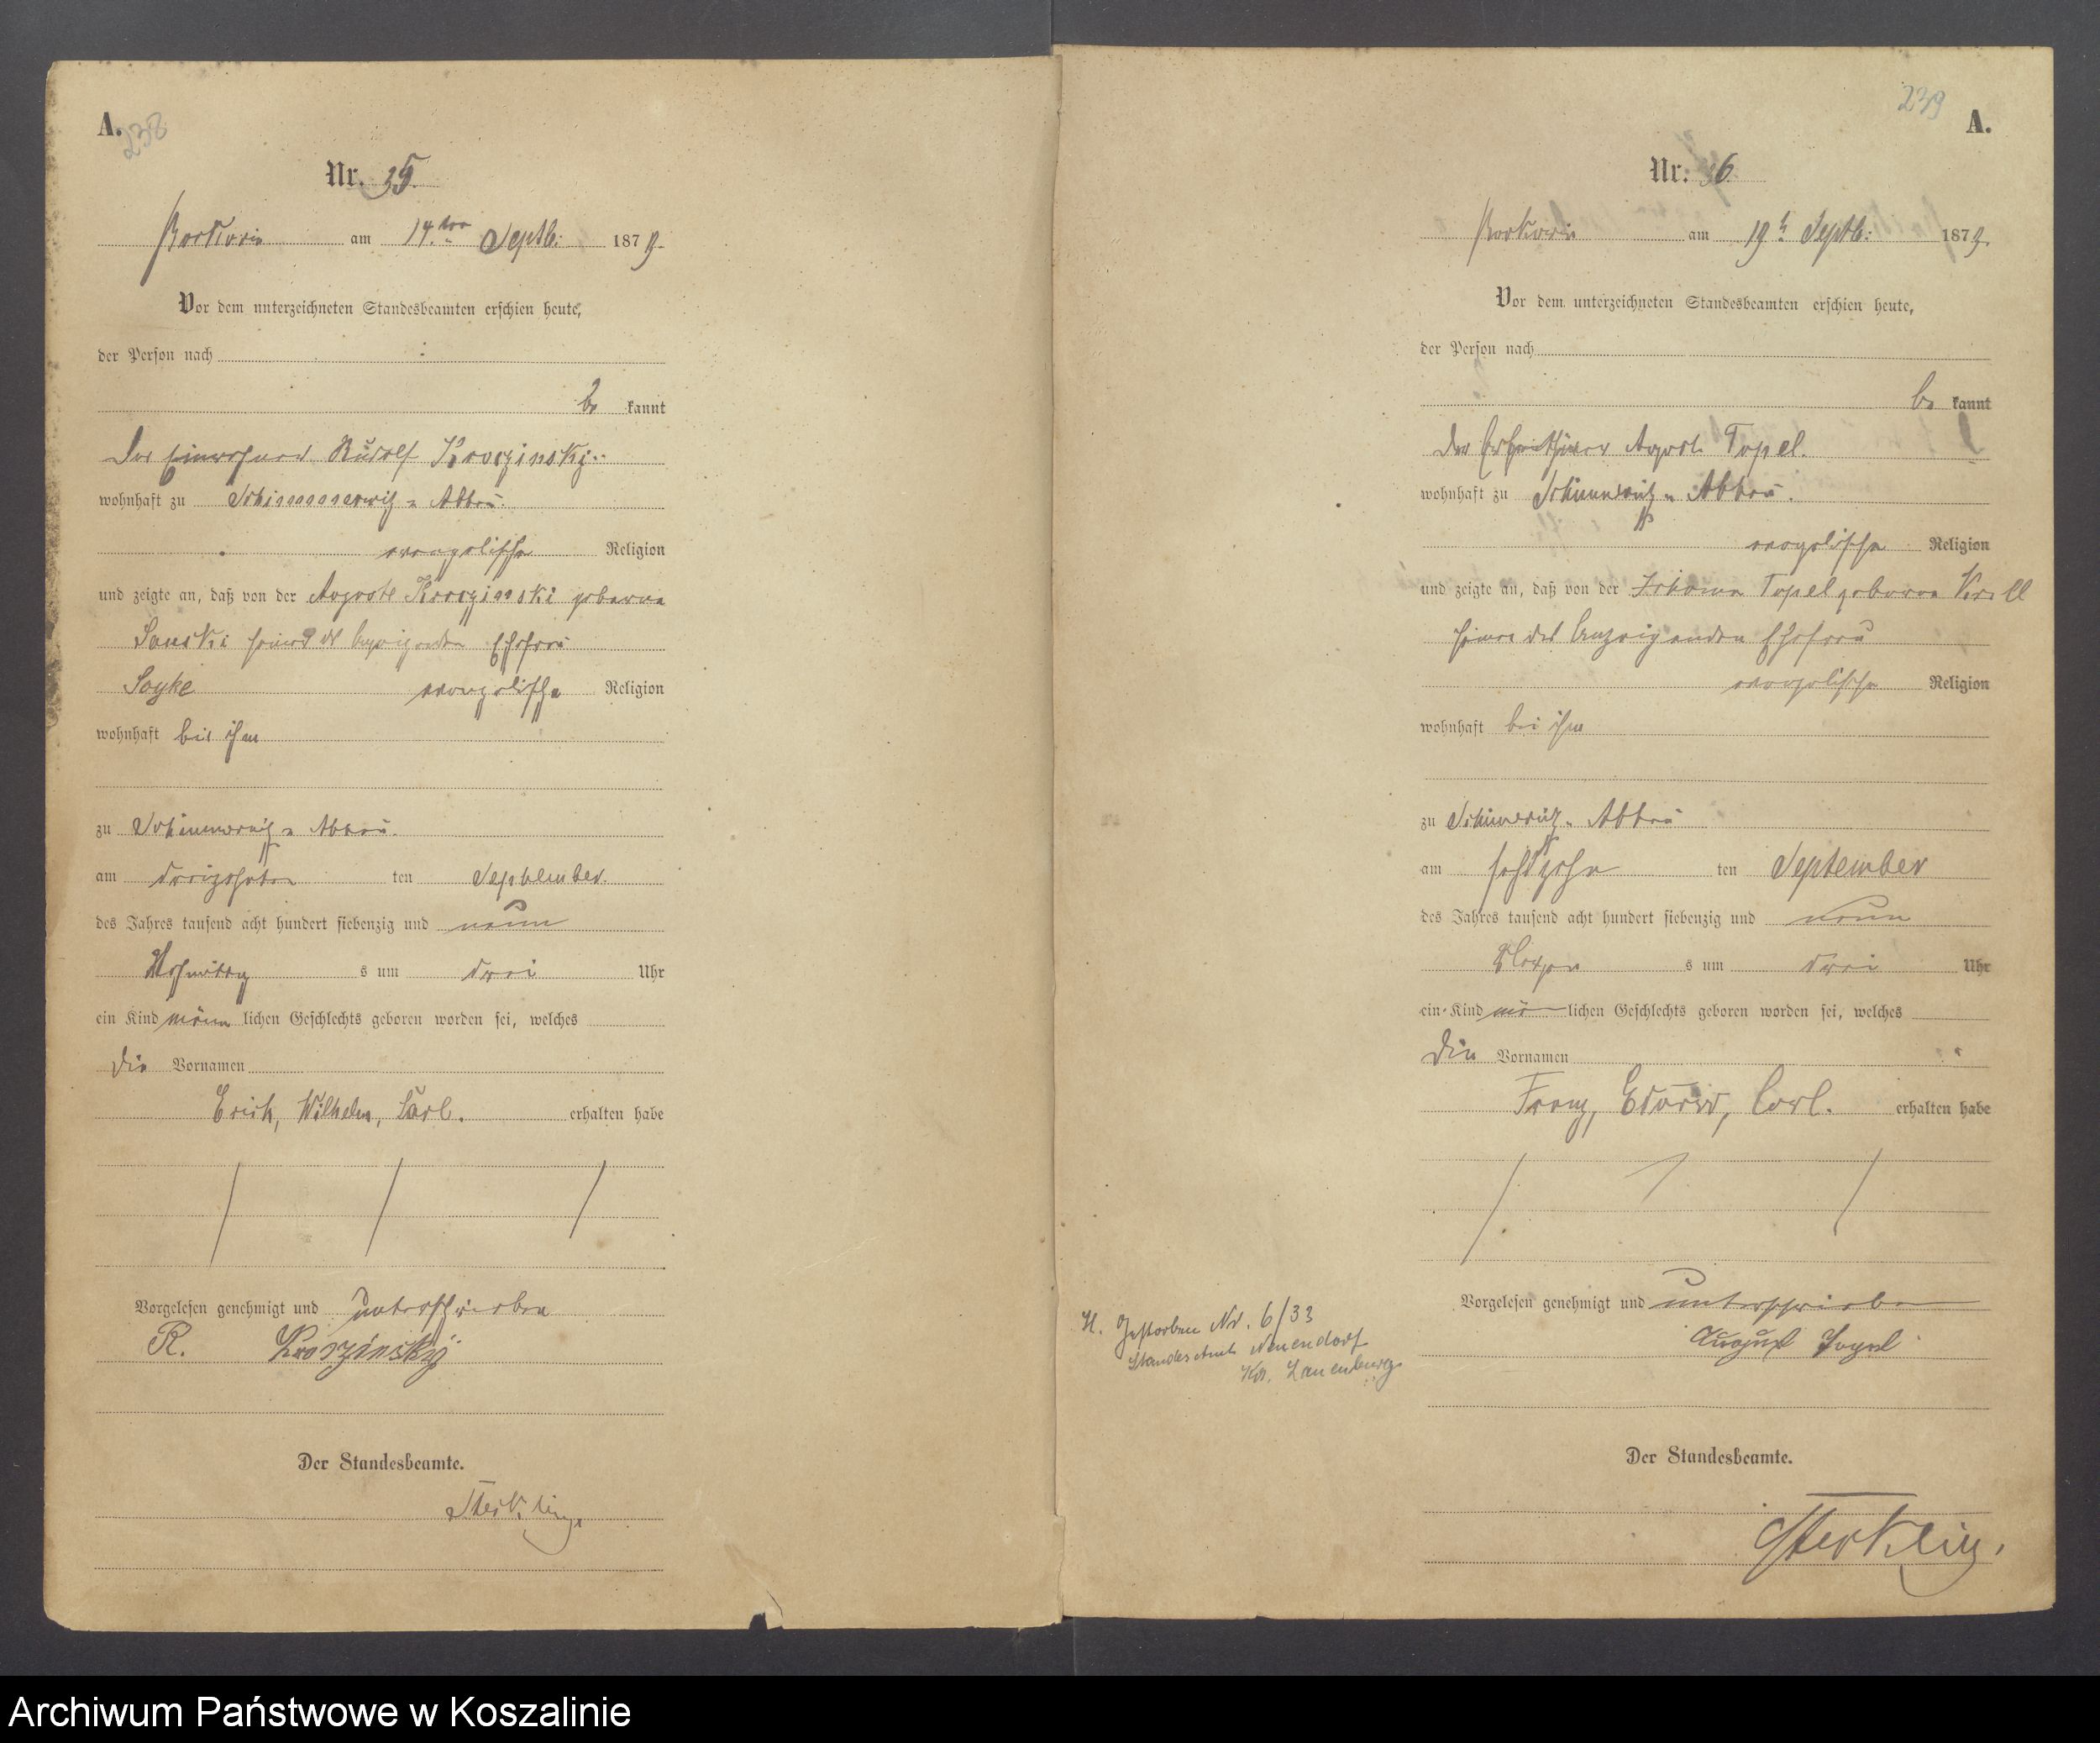 A.
238
Nr. 35.
Borkow am 14ten Septb: 1879.
Vor dem unterzeichneten Standesbeamten erschien heute,
der Person nach
be kannt
Der Einwohner Rudolf Kroszinski
wohnhaft zu Schimmerwitz Abbau.
evangelische Religion
und zeigte an, daß von der Auguste geborene
seiner des Anzeigenden Ehefrau
evangelische Religion
wohnhaft bei ihm
zu Schimmerwitz Abbau.
am dreizehnten ten September
des Jahres tausend acht hundert siebenzig und neun
Nachmittag s um drei Uhr
ein Kind männ lichen Geschlechts geboren worden sei, welches
die Vornamen
Erich, Wilhelm, Carl. erhalten habe
Vorgelesen genehmigt und unterschrieben
R.
Der Standesbeamte.
239
A.
Nr. 36
am 19t Septb: 1879.
Vor dem unterzeichneten Standesbeamten erschien heute,
der Person nach
be kannt
Der August Topel.
wohnhaft zu Schimmerwitz Abbau.
evangelische Religion
und zeigte an, daß von der Topel geborene Kroll
seiner des Anzeigenden Ehefrau
evangelische Religion
wohnhaft bei ihm
zu Schimmerwitz Abbau
am sechszehn ten September
des Jahres tausend acht hundert siebenzig und neun
Morgen s um drei Uhr
ein Kind män lichen Geschlechts geboren worden sei, welches
die Vornamen
Franz, Eduard, Carl. erhalten habe
H. Gestorben Nr. 6/33
Standesamt Neuendorf
Kr. Lauenburg
Vorgelesen genehmigt und unterschrieben
August Topel
Der Standesbeamte.
Archiwum Państwowe w Koszalinie